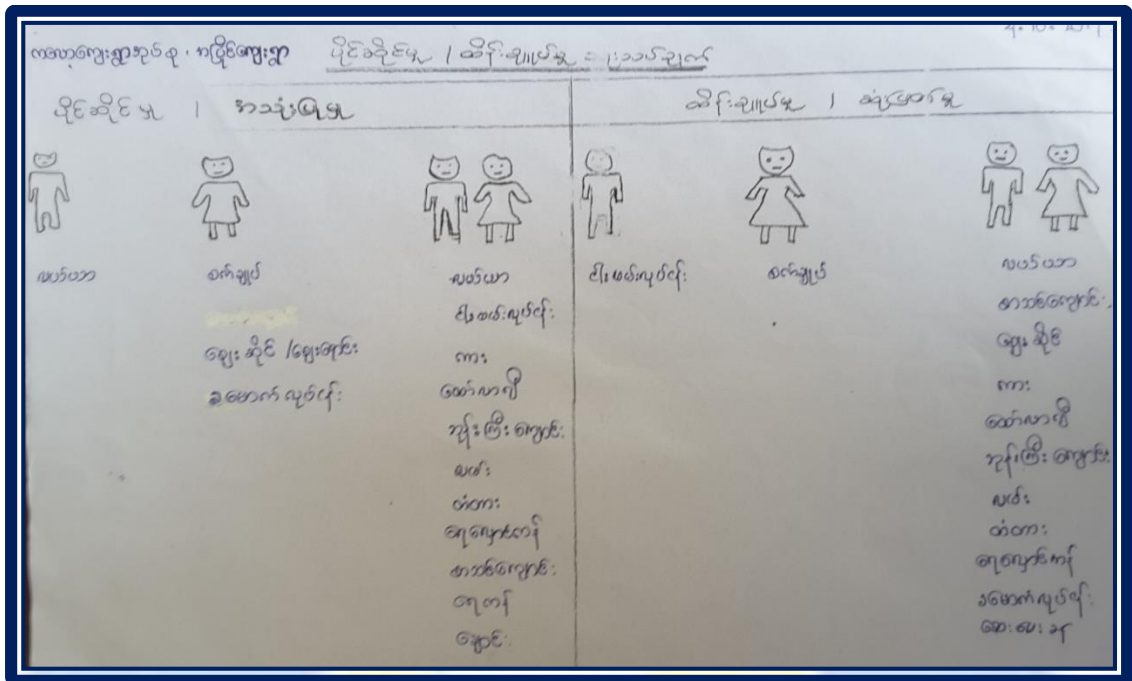 ကလော့ကျေးရွာအုပ်စု၊ ကပြိုင်ကျေးရွာ ပိုင်ဆိုင်မှု / ထိန်းချုပ်မှု
ပိုင်ဆိုင်မှု / အသုံးပြုမှု
ထိန်းချုပ်မှု / ဆုံးဖြတ်မှု
လယ်ယာ
စက်ချုပ်
ဈေးဆိုင် / ဈေးရောင်း
ခမောက်လုပ်ငန်း
လယ်ယာ
ငါးဖမ်းလုပ်ငန်း
ကား
ထော်လာဂျီ
ဘုန်းကြီးကျောင်း
လမ်း
တံတား
ရေလှောင်ကန်
စာသင်ကျောင်း
ရေကန်
ချောင်း
ငါးဖမ်းလုပ်ငန်း
စက်ချုပ်
လယ်ယာ
စာသင်ကျောင်း
ဈေးဆိုင်
ကား
ထော်လာဂျီ
ဘုန်းကြီးကျောင်း
လမ်း
တံတား
ရေလှောင်ကန်
ခမောက်လုပ်ငန်း
ဆေးပေးခန်း